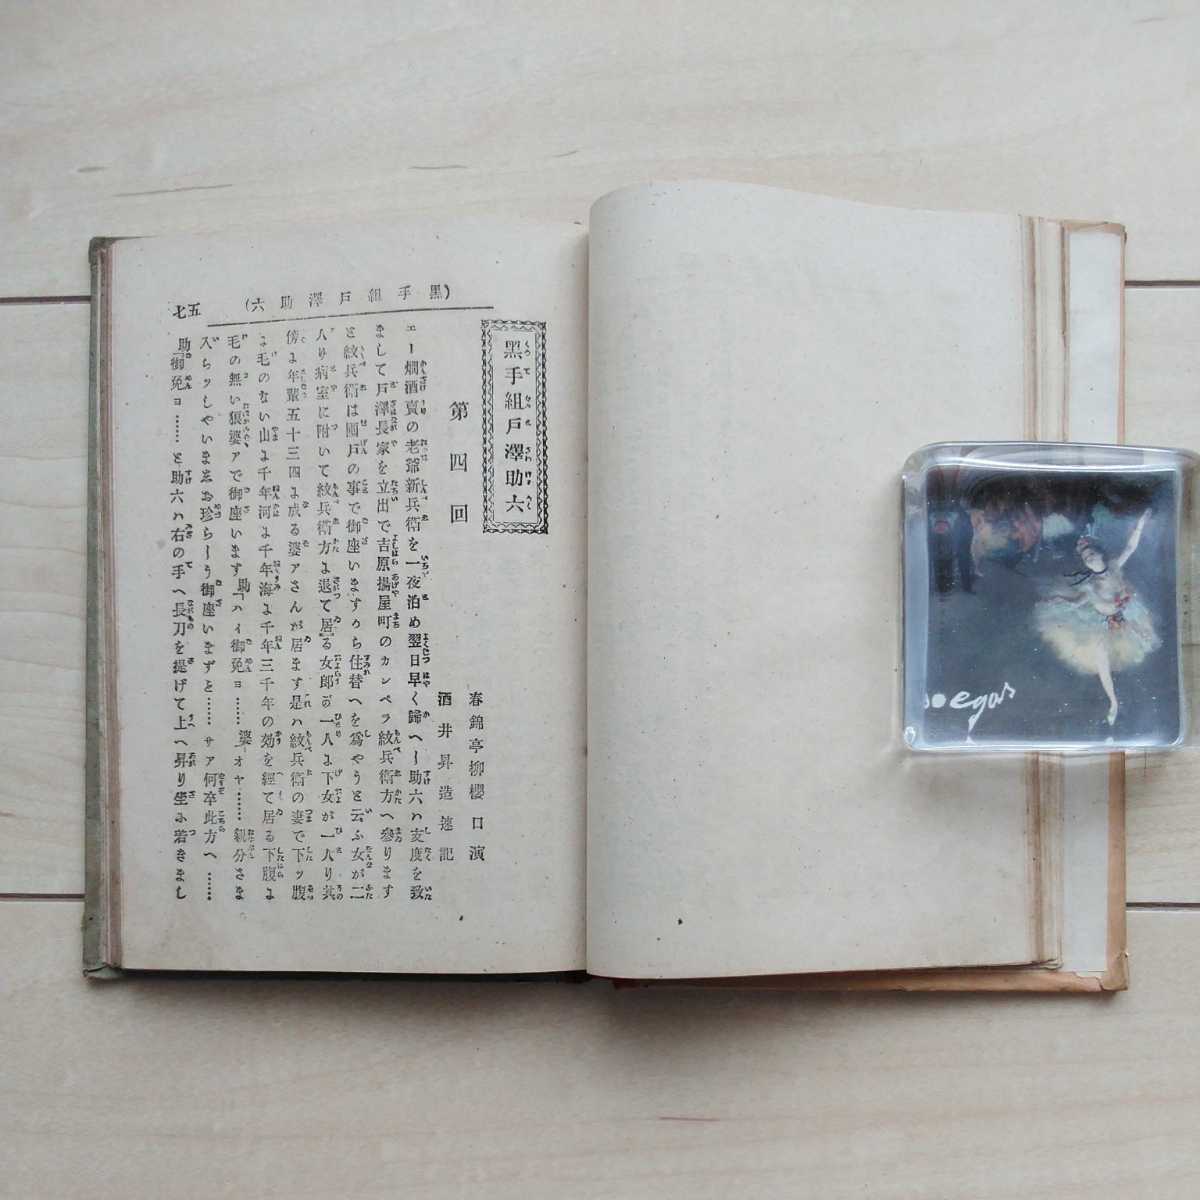 (黑手組戸澤助六)
五七
黑手組戸澤助六
第四回
春錦亭柳櫻口演
酒井昇造速記
エー燗酒賣の老爺新兵衛を一夜泊め翌日早く歸へし助六ハ支度を致
まして戸澤長家を立出で吉原揚屋町のカンペラ紋兵衛方へ參ります
と紋兵衛は圓戸の事で御座いますから住替へを爲やうと云ふ女が二
人り病室に附いて紋兵衛方よ退て居る女郎が一人よ下女が一人り其
傍よ年輩五十三四よ成る婆アさんが居ます是ハ紋兵衛の妻で下ッ腹
よ毛のない山よ千年河よ千年海よ千年三千年の効を經て居る下腹よ
毛の無い狼婆アで御座います助「ハイ御免ヨ……婆「オヤ……親分さま
入らッしやいましお珍らしう御座いますと……サア何卒此方へ……
助「御免ヨ……と助六ハ右の手へ長刀を提げて上へ昇り坐よ着きまし